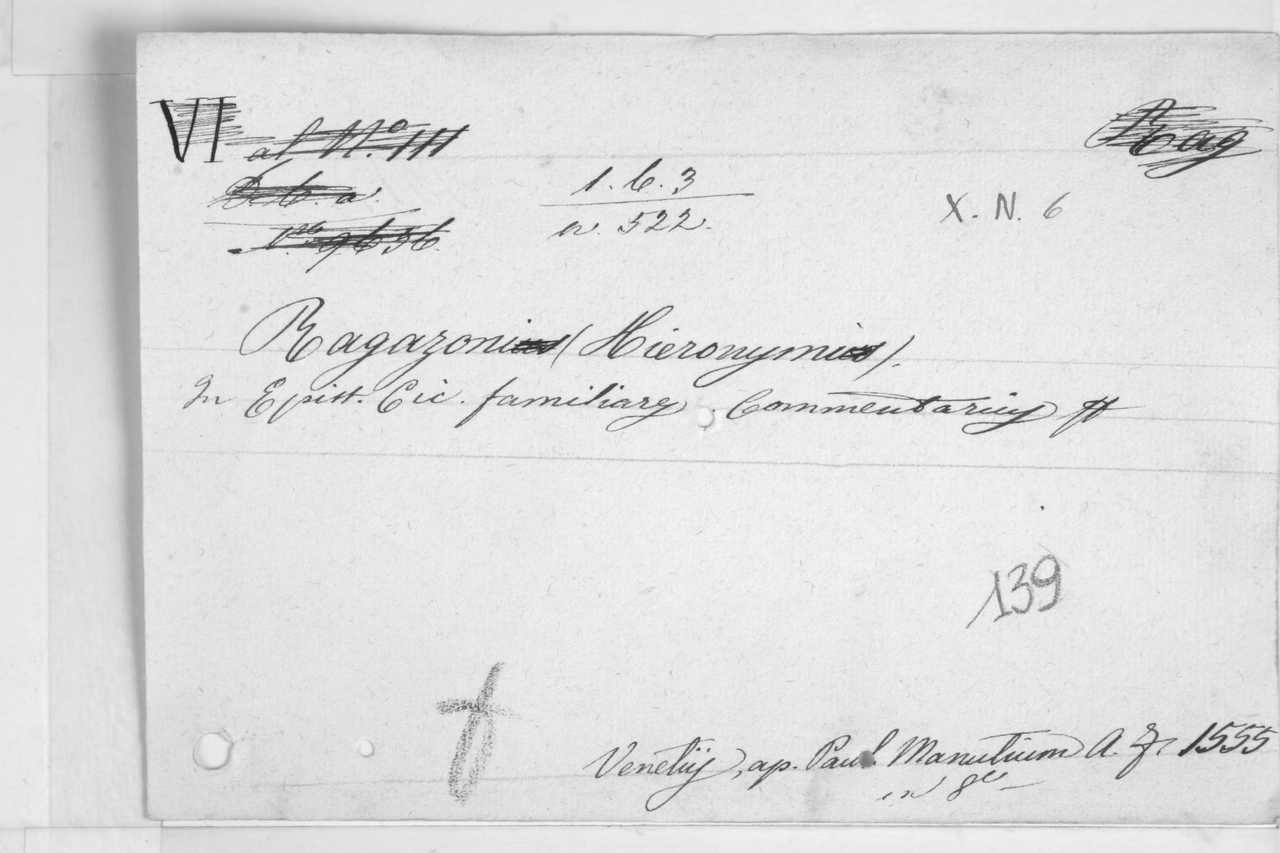 VI al N.º III
Rag
1. 6. 3
n. 522.
X. N. 6
Ragazoni (Hieronymi).
In Epist. Cic. familiares Commentarius
139
Venetijs, ap. Paul. Manutium A. 1555
in 8º